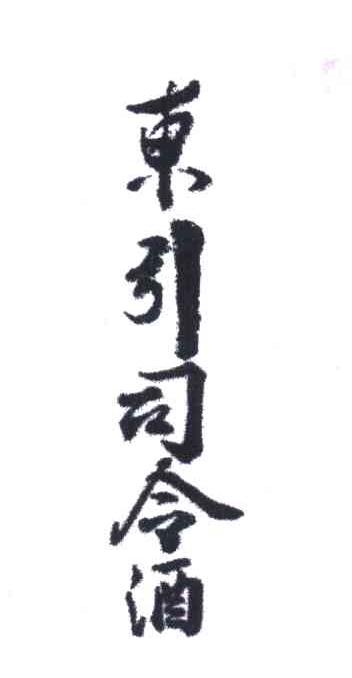 東引司令酒